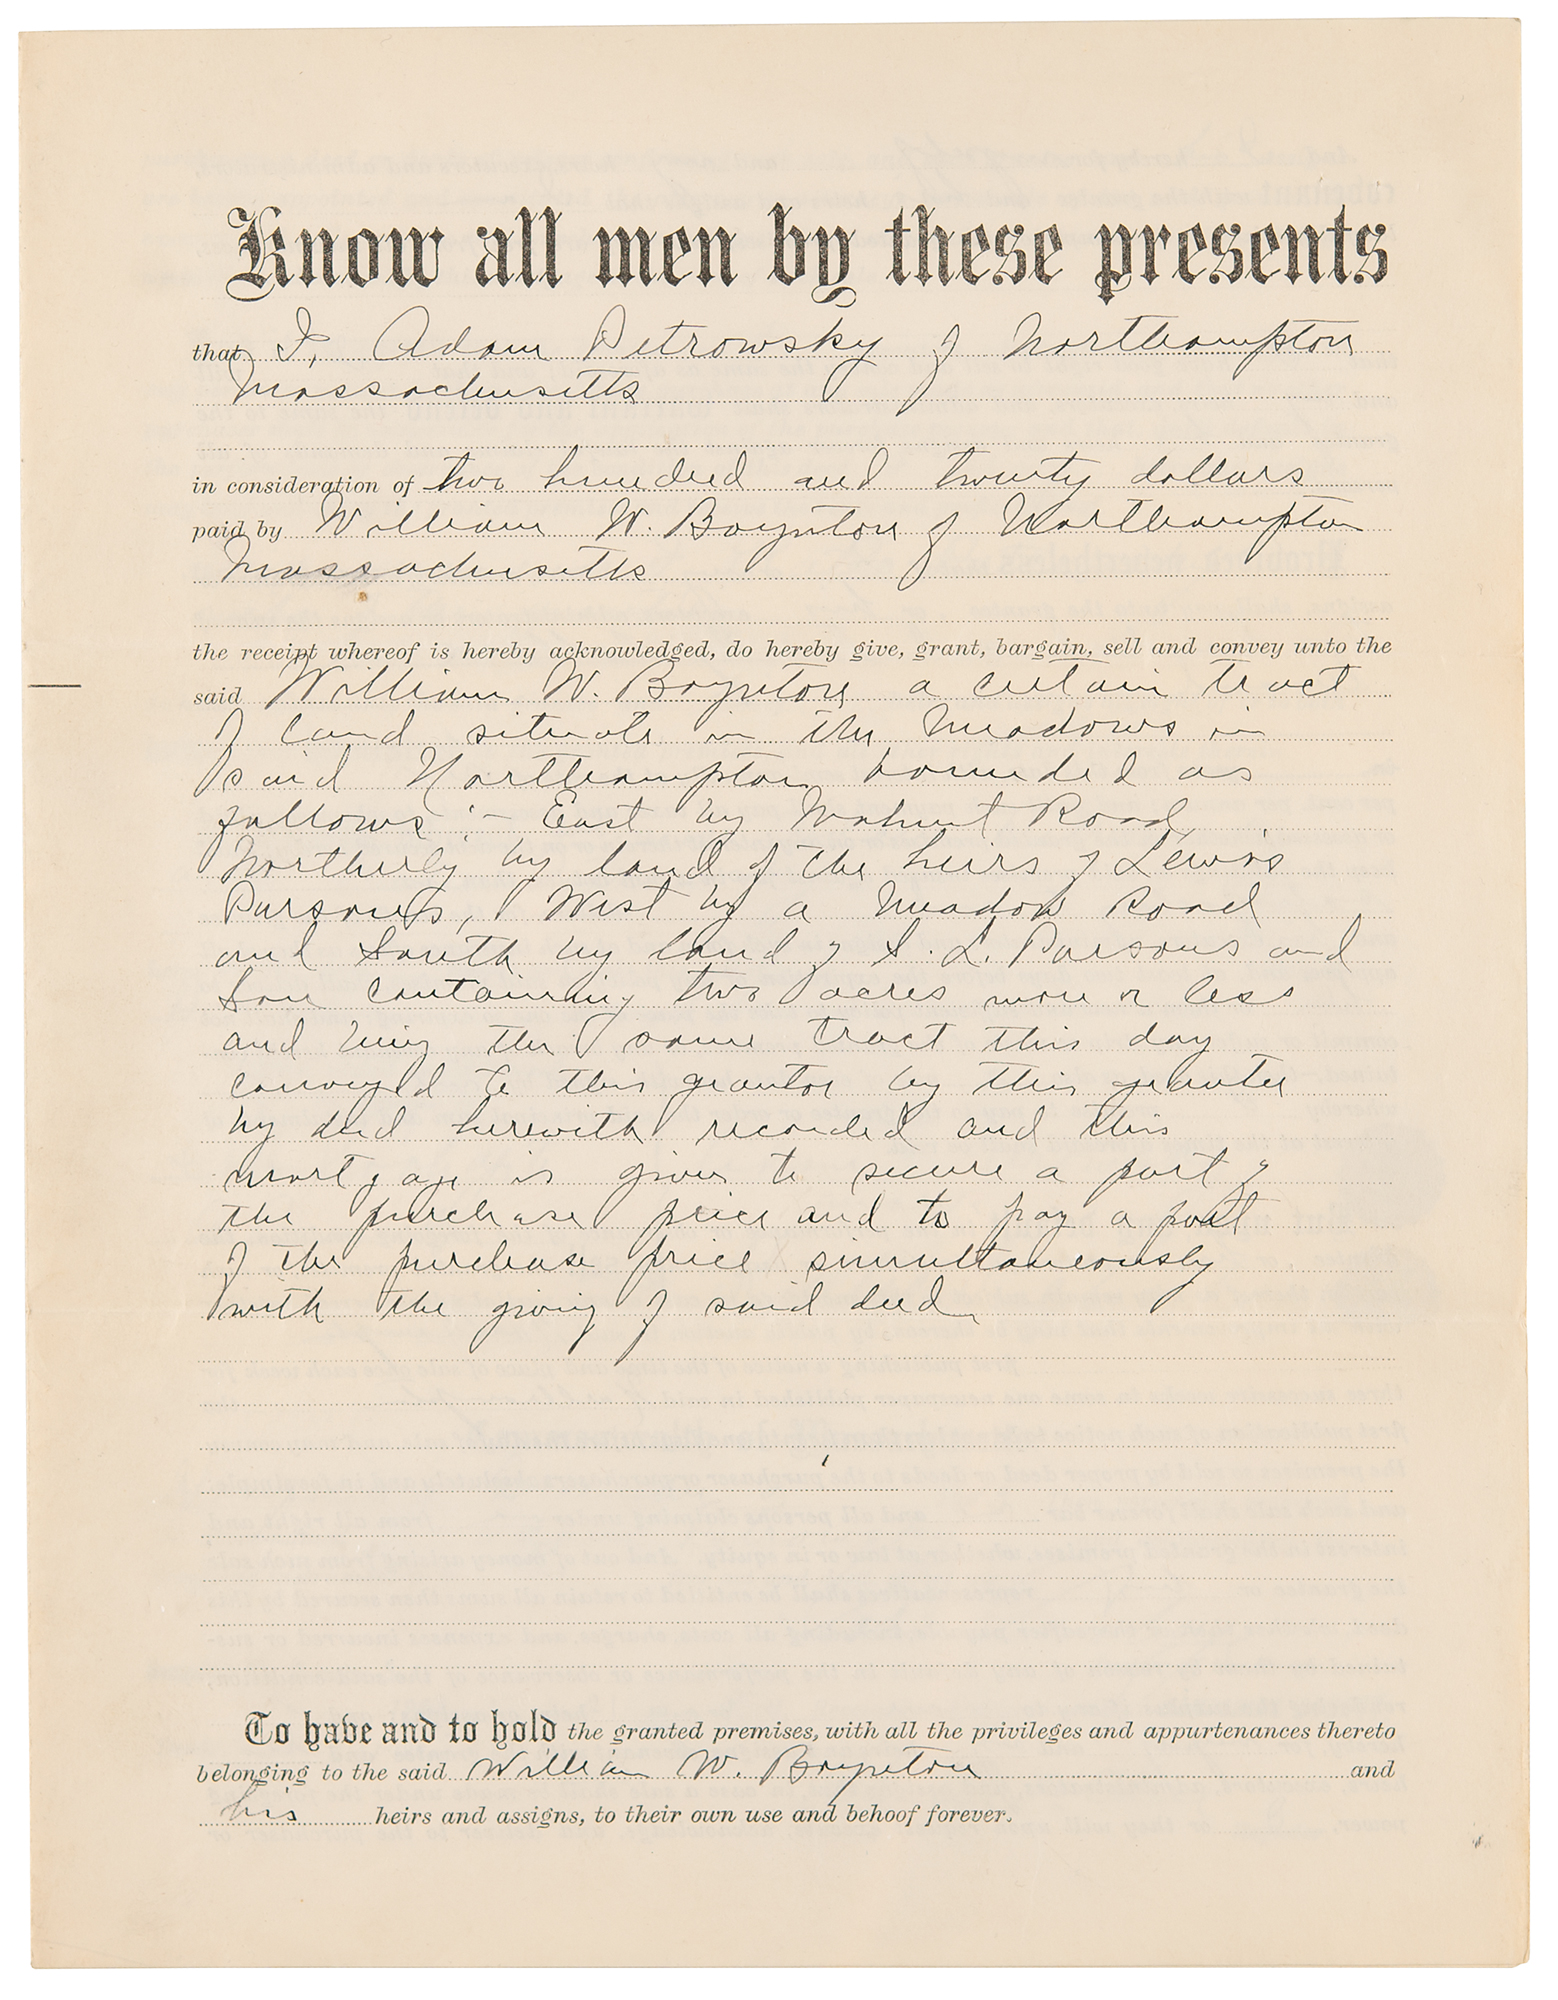 Know all men by these presents
that I, Adam Petrowsky of Northampton
Massachusetts
in consideration of two hundred and twenty dollars
paid by William W. Boynton of Northampton
Massachusetts
the receipt whereof is hereby acknowledged, do hereby give, grant, bargain, sell and convey unto the
said William W. Boynton a certain tract
of land situate in the Meadows in
said Northampton bounded as
follows :- East by Walnut Road,
Northerly by land of the heirs of Lewis
Parsons, West by a Meadow Road
and South by land of S. L. Parsons and
Son containing two acres more or less
and being the same tract this day
conveyed to this grantor by this grantee
by deed herewith recorded and this
mortgage is given to secure a part of
the purchase price and to pay a part
of the purchase price simultaneously
with the giving of said deed
To have and to hold the granted premises, with all the privileges and appurtenances thereto
belonging to the said William W. Boynton and
his heirs and assigns, to their own use and behoof forever.